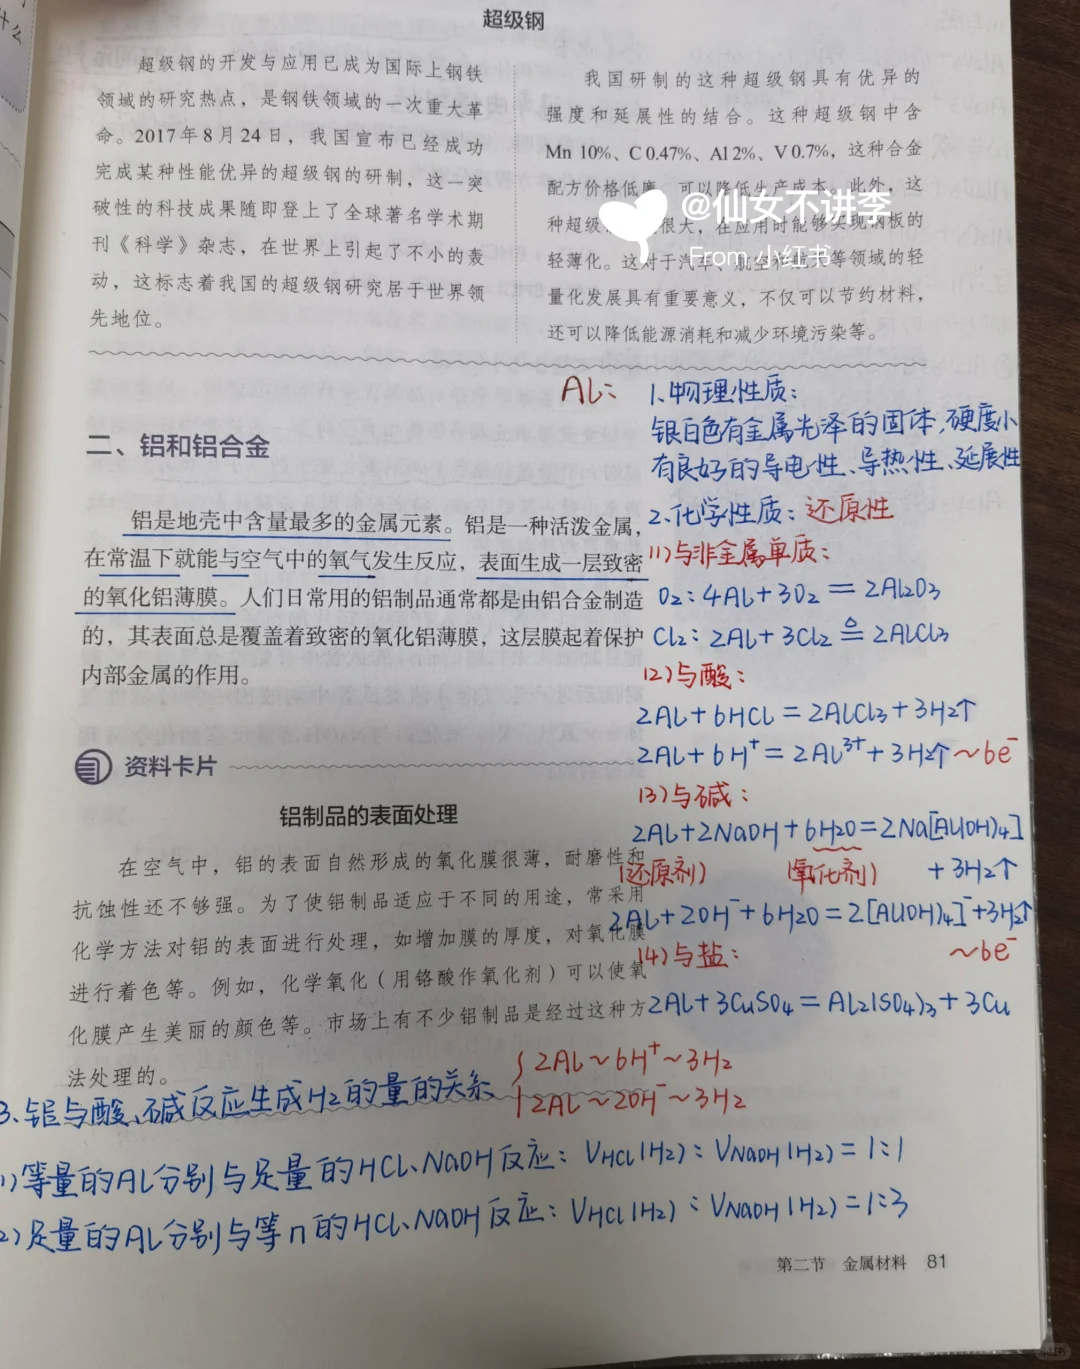 什么
超级钢
超级钢的开发与应用已成为国际上钢铁
领域的研究热点，是钢铁领域的一次重大革
命。2017年8月24日，我国宣布已经成功
完成某种性能优异的超级钢的研制，这一突
破性的科技成果随即登上了全球著名学术期
刊《科学》杂志，在世界上引起了不小的轰
动，这标志着我国的超级钢研究居于世界领
先地位。
我国研制的这种超级钢具有优异的
强度和延展性的结合。这种超级钢中含
Mn 10%、C 0.47%、Al 2%、V 0.7%，这种合金
配方价格低廉，可以降低生产成本。此外，这
种超级 很大，在应用时能够实现钢板的
轻薄化。这对于汽车、航空和航天等领域的轻
量化发展具有重要意义，不仅可以节约材料，
还可以降低能源消耗和减少环境污染等。
@仙女不讲李
From 小红书
二、铝和铝合金
铝是地壳中含量最多的金属元素。铝是一种活泼金属，
在常温下就能与空气中的氧气发生反应，表面生成一层致密
的氧化铝薄膜。人们日常用的铝制品通常都是由铝合金制造
的，其表面总是覆盖着致密的氧化铝薄膜，这层膜起着保护
内部金属的作用。
资料卡片
铝制品的表面处理
在空气中，铝的表面自然形成的氧化膜很薄，耐磨性和
抗蚀性还不够强。为了使铝制品适应于不同的用途，常采用
化学方法对铝的表面进行处理，如增加膜的厚度，对氧化膜
进行着色等。例如，化学氧化（用铬酸作氧化剂）可以使氧
化膜产生美丽的颜色等。市场上有不少铝制品是经过这种方
法处理的。
Al：
1、物理性质：
银白色有金属光泽的固体，硬度小
有良好的导电性、导热性、延展性
2、化学性质：还原性
(1)与非金属单质：
O₂：4Al+3O₂＝2Al₂O₃
Cl₂：2Al+3Cl₂ ≜ 2AlCl₃
(2)与酸：
2Al+6HCl＝2AlCl₃+3H₂↑
2Al+6H⁺＝2Al³⁺+3H₂↑～6e⁻
(3)与碱：
2Al+2NaOH+6H₂O＝2Na[Al(OH)₄]
(还原剂) (氧化剂) +3H₂↑
2Al+2OH⁻+6H₂O＝2[Al(OH)₄]⁻+3H₂↑
(4)与盐： ～6e⁻
2Al+3CuSO₄＝Al₂(SO₄)₃+3Cu
3、铝与酸、碱反应生成H₂的量的关系
2Al～6H⁺～3H₂
2Al～2OH⁻～3H₂
(1)等量的Al分别与足量的HCl、NaOH反应：VHCl(H₂)：VNaOH(H₂)＝1:1
(2)足量的Al分别与等n的HCl、NaOH反应：VHCl(H₂)：VNaOH(H₂)＝1:3
第二节 金属材料 81